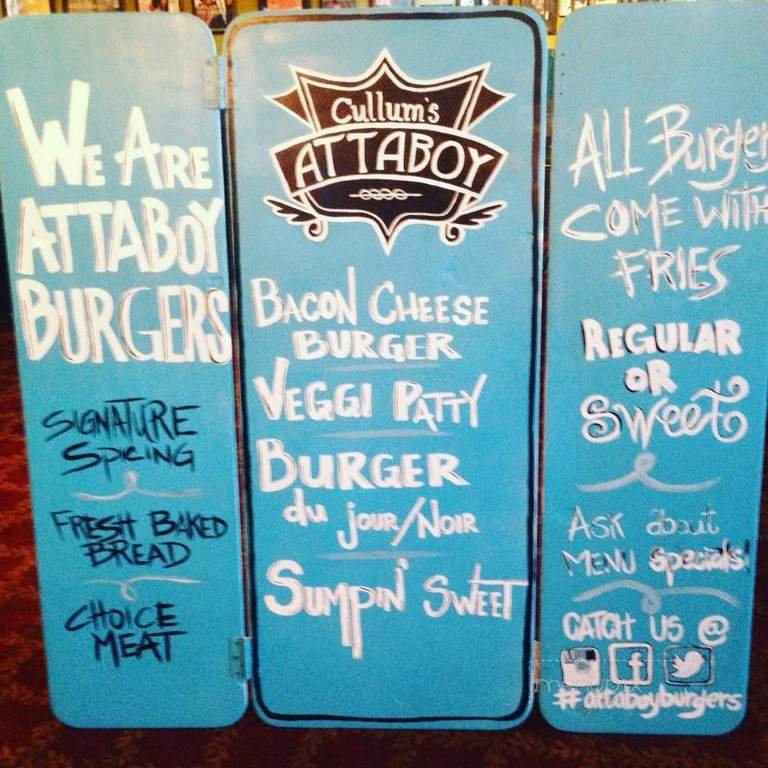 We Are
ATTABOY
BURGERS
SIGNATURE
SPICING
FRESH BAKED
BREAD
CHOICE
MEAT
Cullum's
ATTABOY
BACON CHEESE
BURGER
VEGGI PATTY
BURGER
du jour/Noir
SUMPIN' SWEET
ALL Burger
COME WITH
FRIES
REGULAR
OR
Sweet
ASK about
MENU specials!
CATCH US @
f
#attaboyburgers